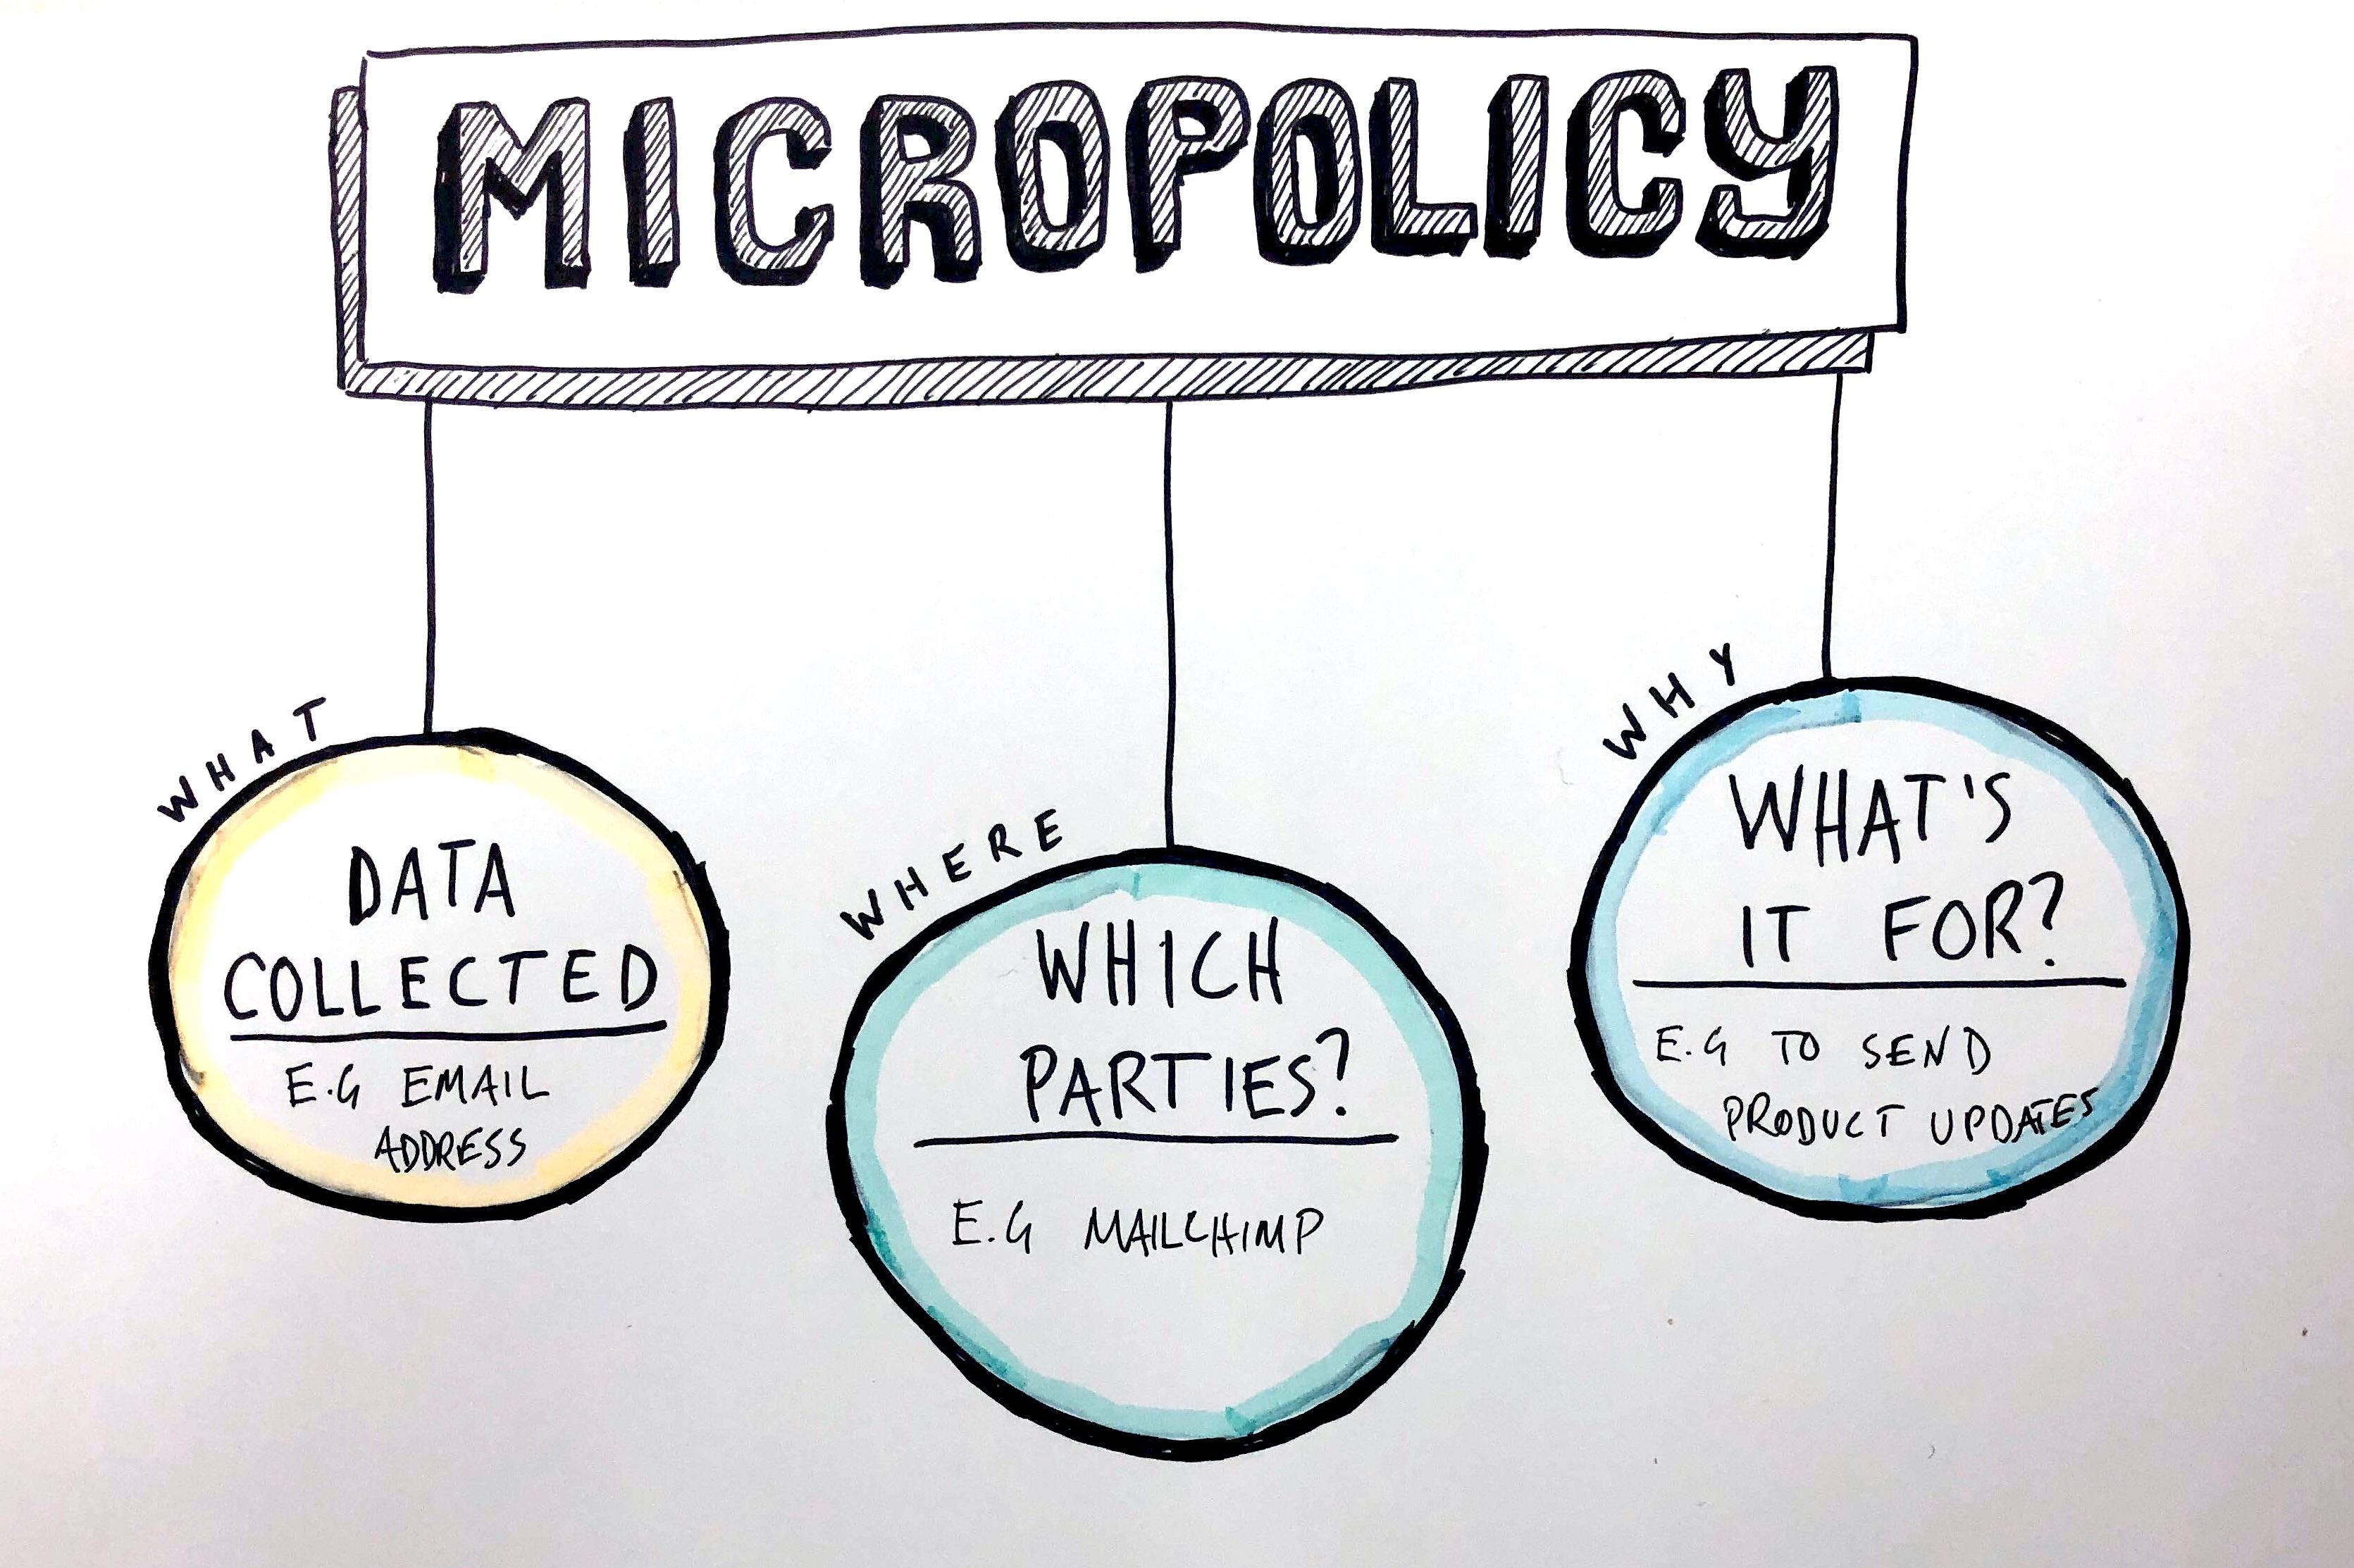 MICROPOLICY
WHAT
DATA
COLLECTED
E.G EMAIL
ADDRESS
WHERE
WHICH
PARTIES?
E.G MAILCHIMP
WHY
WHAT'S
IT FOR?
E.G TO SEND
PRODUCT UPDATES